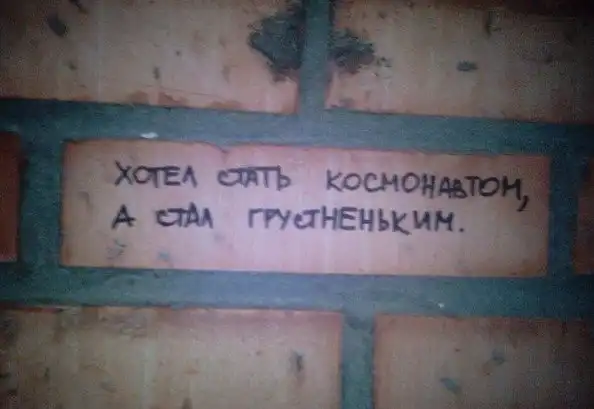 ХОТЕЛ СТАТЬ КОСМОНАВТОМ,
А СТАЛ ГРУСТНЕНЬКИМ.